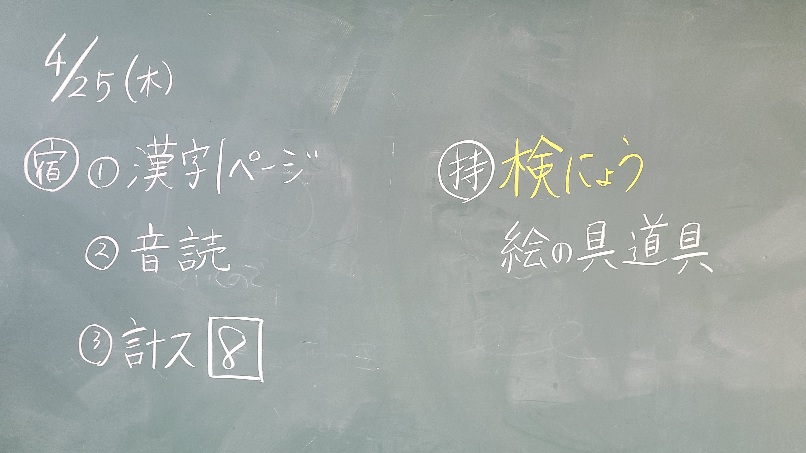 4/25(木)
宿 ① 漢字1ページ
② 音読
③ 計ス 8
持 検にょう
絵の具道具